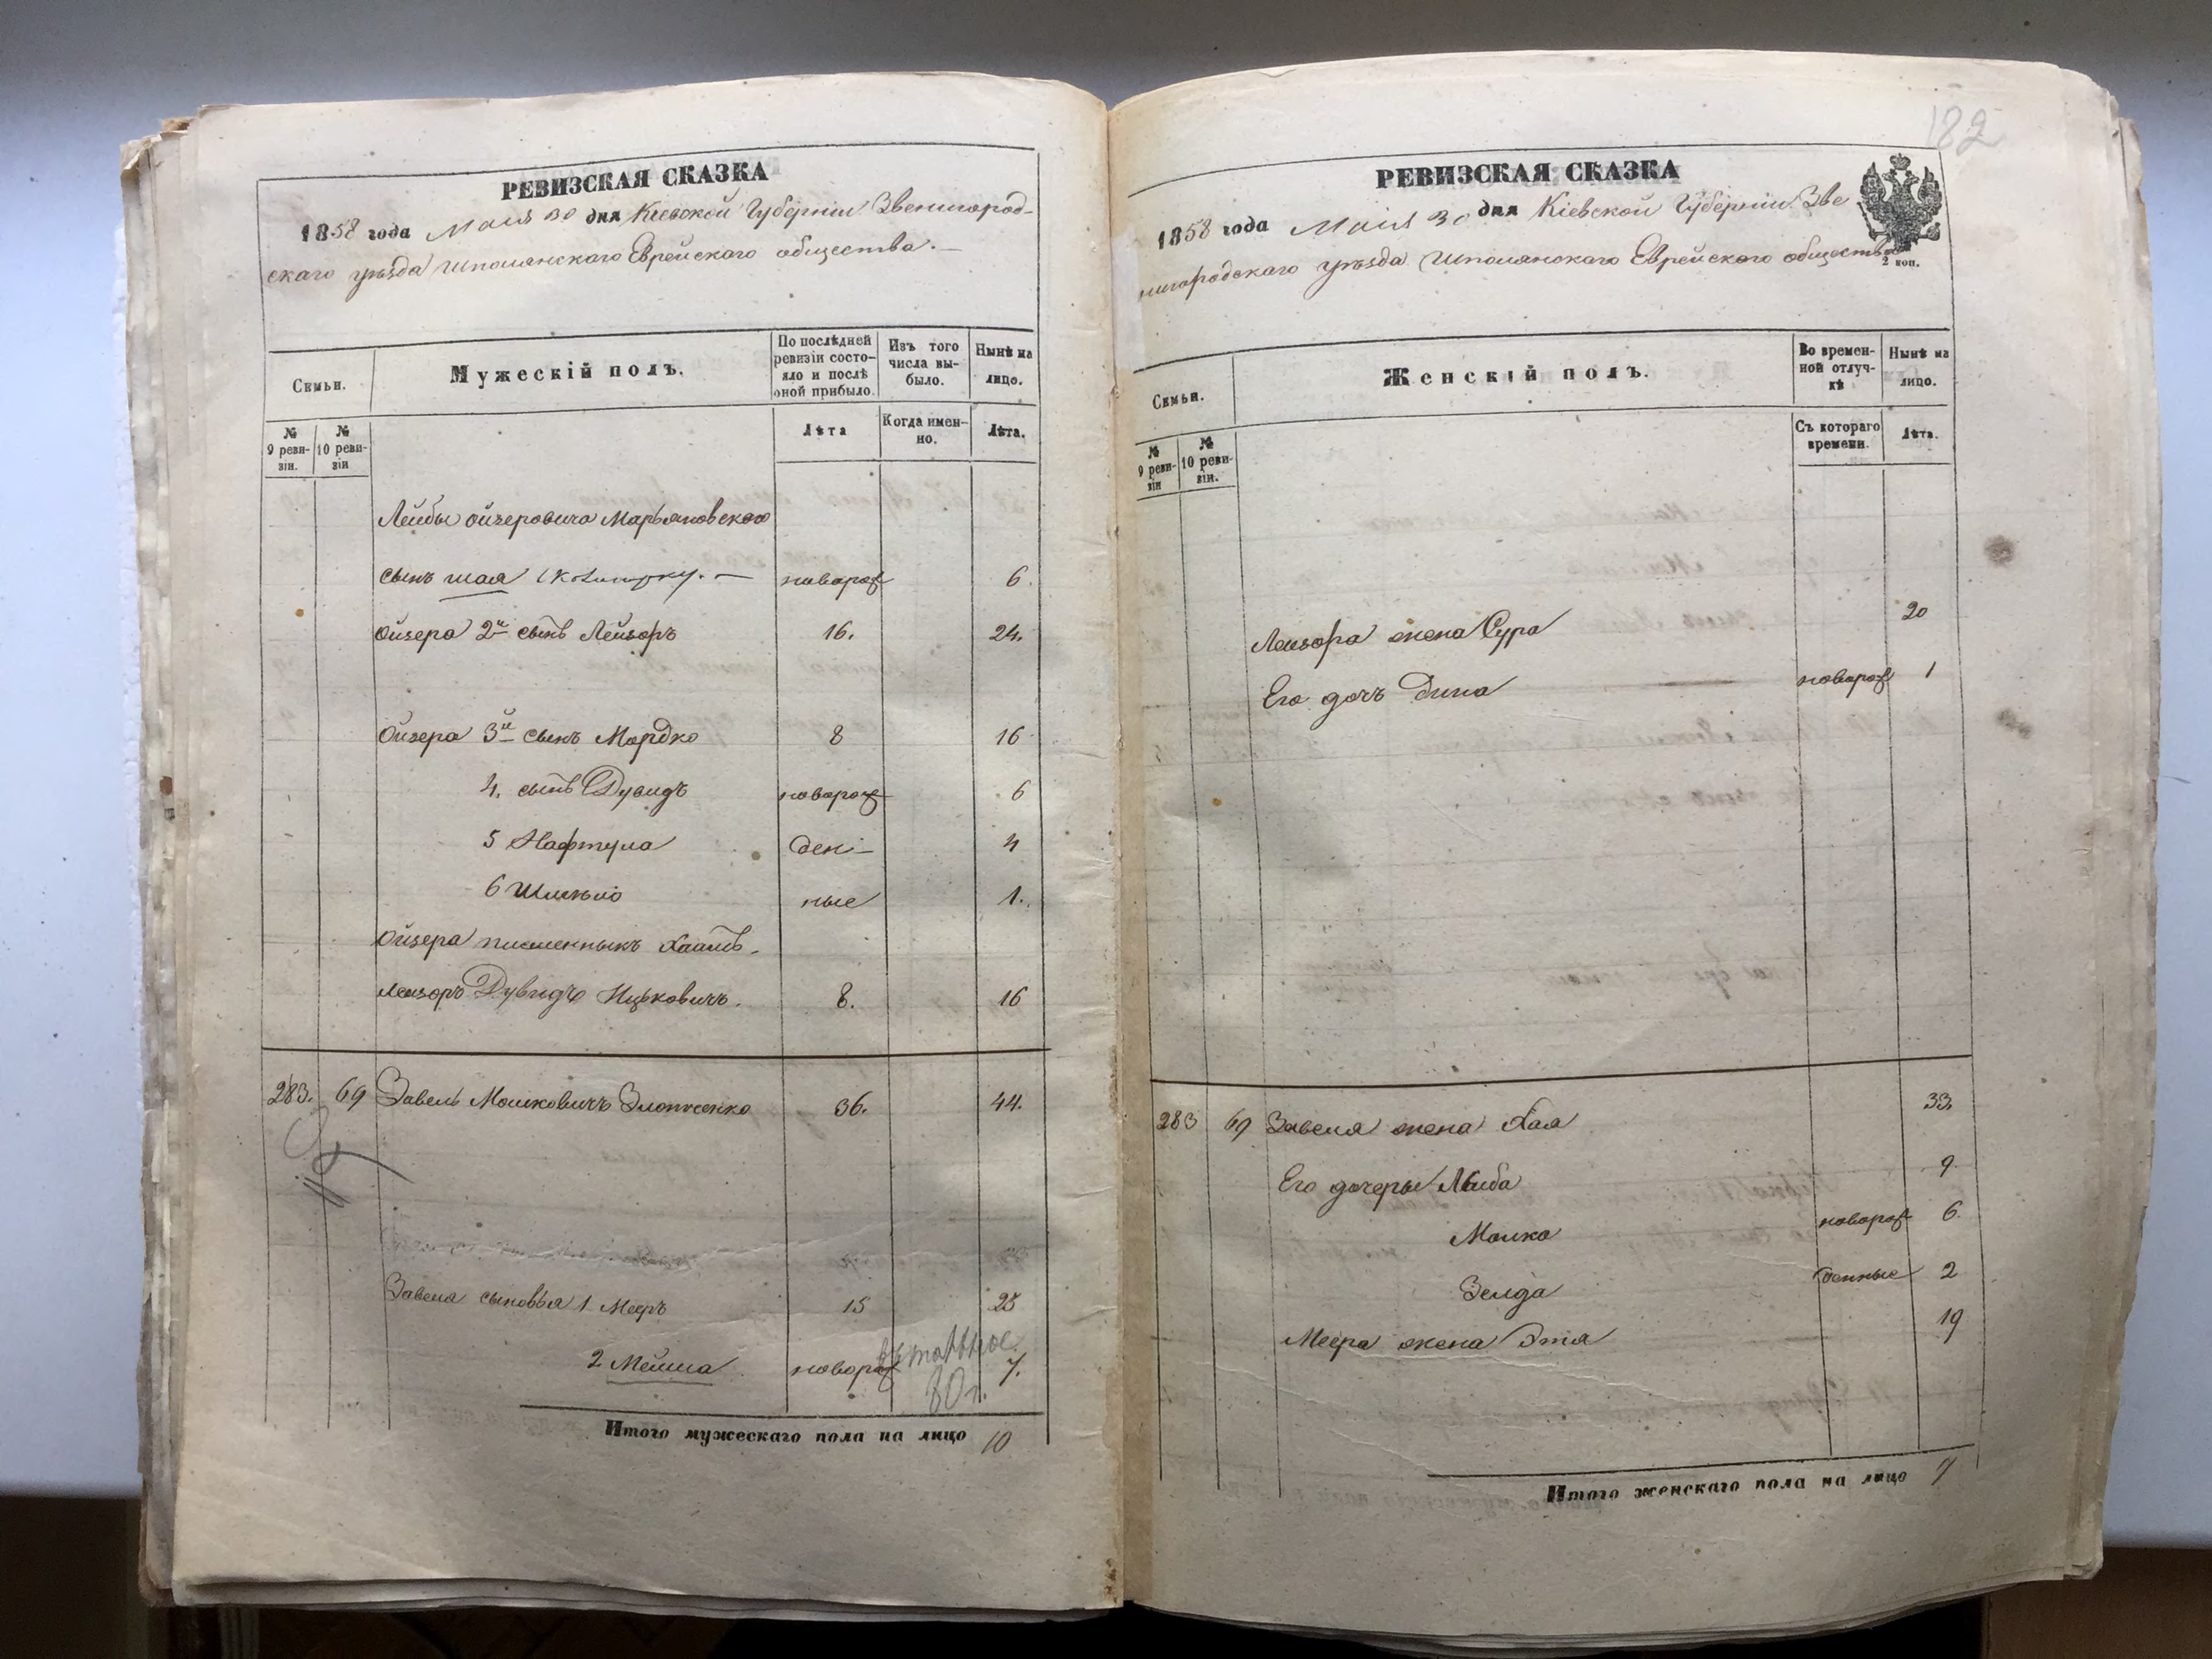 РЕВИЗСКАЯ СКАЗКА
1858 года Маія 30 дня Кіевской Губерніи Звенигород-
скаго уѣзда Шполянскаго Еврейскаго общества. —
Семьи.
Мужескій полъ.
По послѣдней ревизіи состо-яло и послѣ оной прибыло.
Изъ того числа вы-было.
Нынѣ на лицо.
№ 9 реви-зіи.
№ 10 реви-зіи
Лѣта
Когда имен-но.
Лѣта.
Лейбы Ойзеровича Марьяновского
сынъ Шая новорож 6.
Ойзера 2й сынъ Лейзоръ 16. 24.
Ойзера 3й сынъ Мордко 8 16
4. сынъ Дувидъ новорож 6
5 Нафтула ден- 4
6 Шмелько ные 1.
Ойзера
Лейзоръ Дувидъ Ицьковичъ. 8. 16
283. 69 Завель Мошковичъ 36. 44.
Завеля сыновья 1 Мееръ 15 23
2 Мейша новорож 7.
80 г.
Итого мужескаго пола на лицо 10
182
РЕВИЗСКАЯ СКАЗКА
1858 года Маія 30 дня Кіевской Губерніи Зве
нигородскаго уѣзда Шполянскаго Еврейскаго общества
2 коп.
Семьи.
Женскій полъ.
Во времен-ной отлуч-кѣ
Нынѣ на лицо.
№ 9 реви-зіи
№ 10 реви-зіи.
Съ котораго времени.
Лѣта.
Лейзора жена Сура 20
Его дочь Дина новорож 1
283 69 Завеля жена Хая 33
Его дочеры Лыба 9
Малка новорож 6
Зелда денные 2
Меера жена Этя 19
Итого женскаго пола на лицо 7